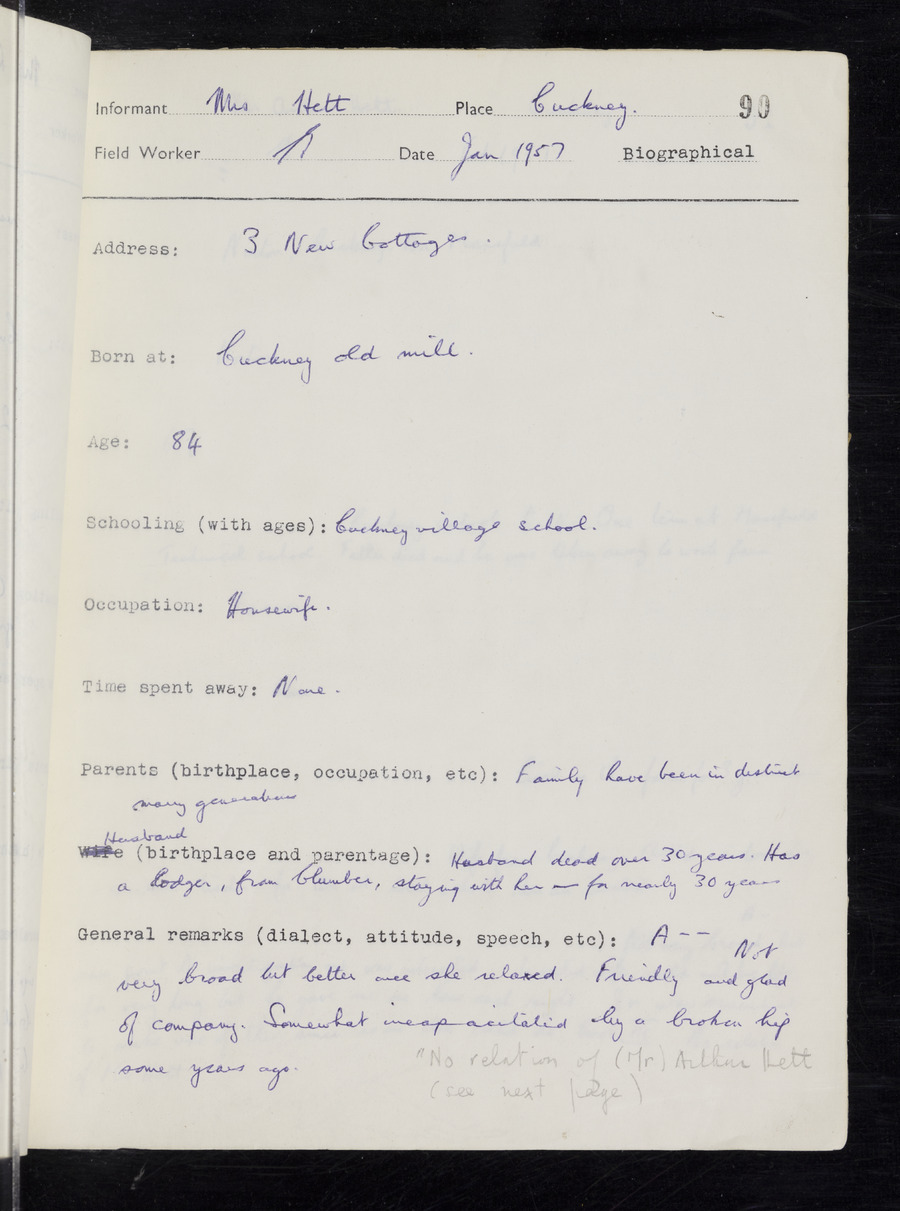 Informant Mrs Hett Place Cuckney. 90
Field Worker Date Jan 1957 Biographical
Address: 3 New Cottages.
Born at: Cuckney old mill.
Age: 84
Schooling (with ages): Cuckney village school.
Occupation: Housewife.
Time spent away: None.
Parents (birthplace, occupation, etc): Family have been in district
many generations
Husband
Wife (birthplace and parentage): Husband dead over 30 years. Has
a lodger, from Clumber, staying with her for nearly 30 years
General remarks (dialect, attitude, speech, etc): A-- Not
very broad but better once she relaxed. Friendly and glad
of company. Somewhat incapacitated by a broken hip
some years ago.
"No relation of (Mr) Arthur Hett
(see next page)